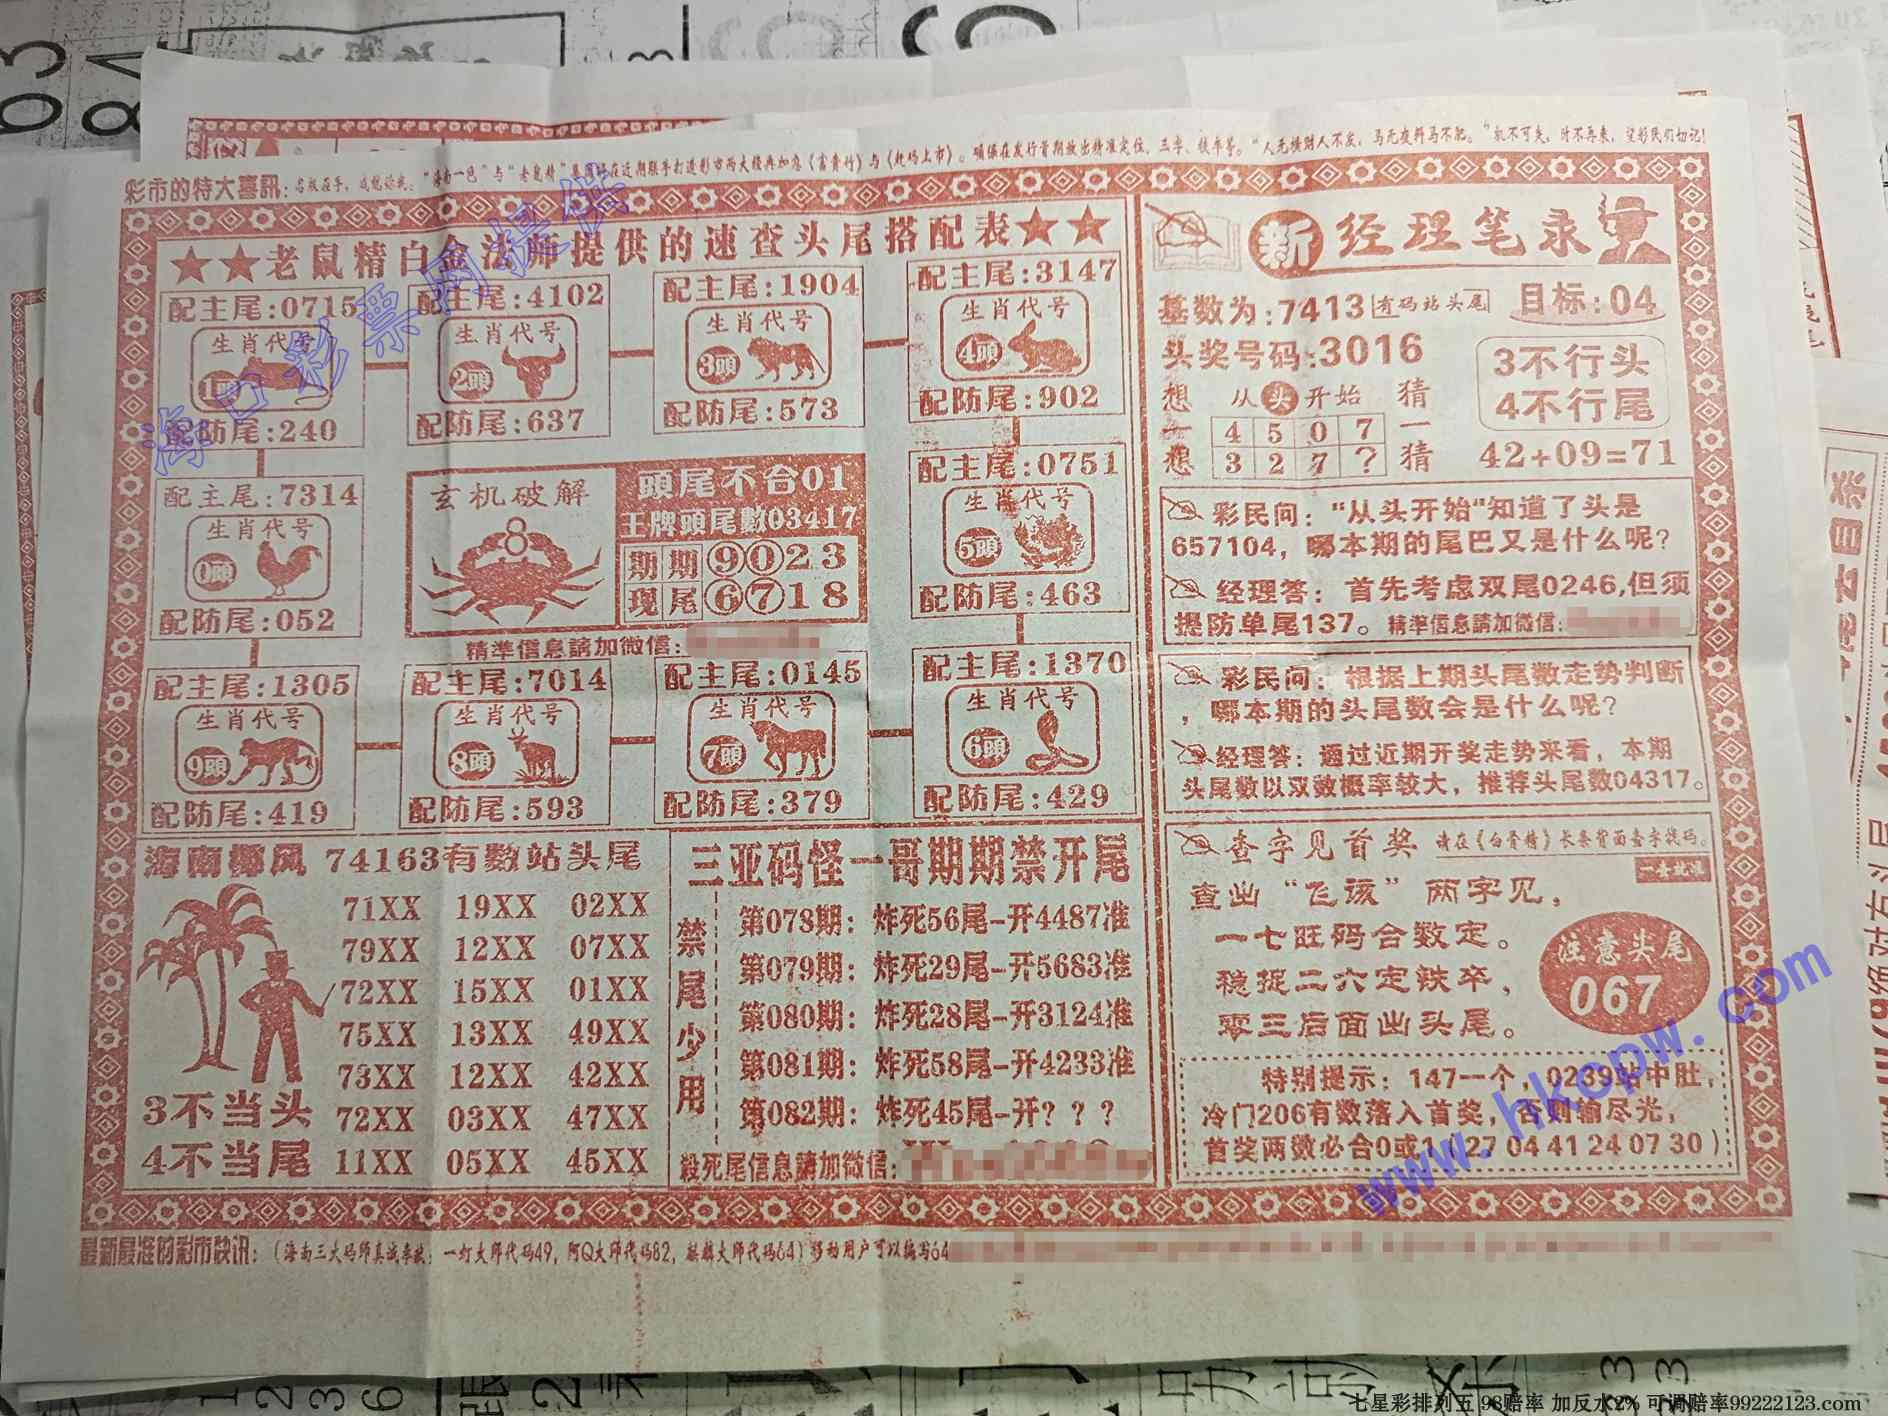 彩市的特大喜訊:
"人无横财人不发，马无夜料马不肥。"机不可失，时不再来，望彩民们切记!
★★老鼠精白金法师提供的速查头尾搭配表★★
配主尾:0715
生肖代号
1頭
配防尾:240
配主尾:4102
生肖代号
2頭
配防尾:637
配主尾:1904
生肖代号
3頭
配防尾:573
配主尾:3147
生肖代号
4頭
配防尾:902
配主尾:7314
生肖代号
0頭
配防尾:052
玄机破解
8
頭尾不合01
王牌頭尾數03417
期期⑨⓪23
现尾⑥⑦18
精準信息請加微信:
配主尾:0751
生肖代号
5頭
配防尾:463
配主尾:1305
生肖代号
9頭
配防尾:419
配主尾:7014
生肖代号
8頭
配防尾:593
配主尾:0145
生肖代号
7頭
配防尾:379
配主尾:1370
生肖代号
6頭
配防尾:429
海南椰风 74163有数站头尾
71XX 19XX 02XX
79XX 12XX 07XX
72XX 15XX 01XX
75XX 13XX 49XX
73XX 12XX 42XX
72XX 03XX 47XX
11XX 05XX 45XX
3不当头
4不当尾
三亚码怪一哥期期禁开尾
禁尾少用
第073期：炸死56尾-开4487准
第079期：炸死29尾-开5683准
第080期：炸死28尾-开3124准
第081期：炸死58尾-开4233准
第082期：炸死45尾-开? ? ?
殺死尾信息請加微信:
新经理笔录
基数为:7413 有码站头尾 目标:04
头奖号码:3016
3不行头
4不行尾
想一想
从头开始
4 5 0 7
3 2 7 ?
猜一猜
42+09=71
彩民问："从头开始"知道了头是
657104，哪本期的尾巴又是什么呢?
经理答：首先考虑双尾0246,但须
提防单尾137。精準信息請加微信:
彩民问：根据上期头尾数走势判断
，哪本期的头尾数会是什么呢?
经理答：通过近期开奖走势来看，本期
头尾数以双数概率较大，推荐头尾数04317。
查字见首奖 请在《白骨精》长条背面查字找码。
一查就准
查出"飞该"两字见，
一七旺码合数定。
稳捉二六定铁卒，
零三后面出头尾。
注意头尾
067
特别提示：147一个，0239站中肚，
冷门206有数落入首奖，否则输尽光，
首奖两数必合0或1(27 04 41 24 07 30)
最新最准的彩市快讯:(海南三大码师真诚奉献：一灯大师代码49，阿Q大师代码82，麒麟大师代码64)移动用户可以编写64
海口彩票网提供
www.hkcpw.com
七星彩排列五 98赔率 加反水2% 可调赔率99222123.com